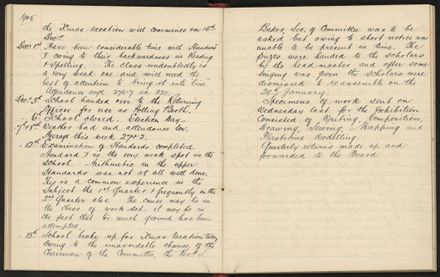 1905
the Xmas vacation will commence on 15th
Dec.
Dec. 1st Have been considerable time with Standard
I owing to their backwardness in Reading
& Spelling. The class undoubtedly is
a very weak one and will need the
best of attention to bring it into line
Attendance avge. 276.7 on 320.
Dec. 5th School handed over to the Returning
Officer for use as Polling Booth.
6th School closed. Election Day.
Weather bad and attendance low.
Average this week 274.2.
12th Examination of Standards completed.
Standard I is the very weak spot in the
School. Arithmetic in the upper
Standards was not at all well done.
This is a common experience in the
Subject the 1st Quarter & frequently in the
2nd Quarter also. The cause may be in
the class of work set, it may be in
the fact that too much ground has been
attempted.
15th School broke up for Xmas Vacation today
Owing to the unavoidable absence of the
Chairman of the Committee, the
Sec. of Committee was to be
asked but owing to short notice was
unable to be present in time. The
prizes were handed to the scholars
by the head master and after some
singing was given the scholars were
dismissed to reassemble on the
January.
Specimens of work sent on
Wednesday last for the Exhibition
Consisted of Writing, Composition,
Drawing, Sewing, Mapping and
Plasticine Modelling.
Quarterly returns made up and
forwarded to the Board.